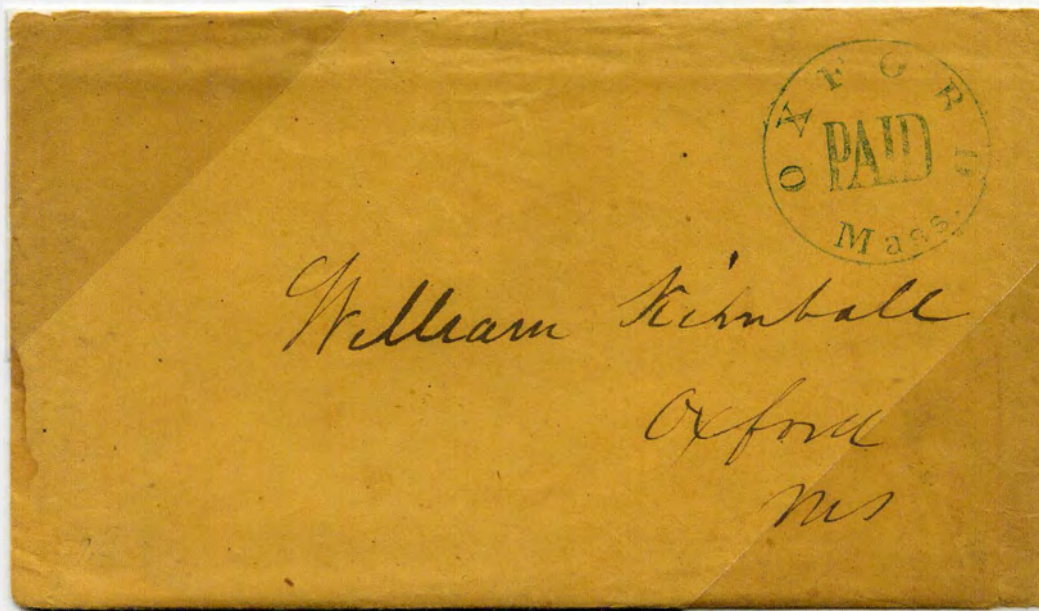 OXFORD
PAID
Mass.
William Kimball
Oxford
Ms